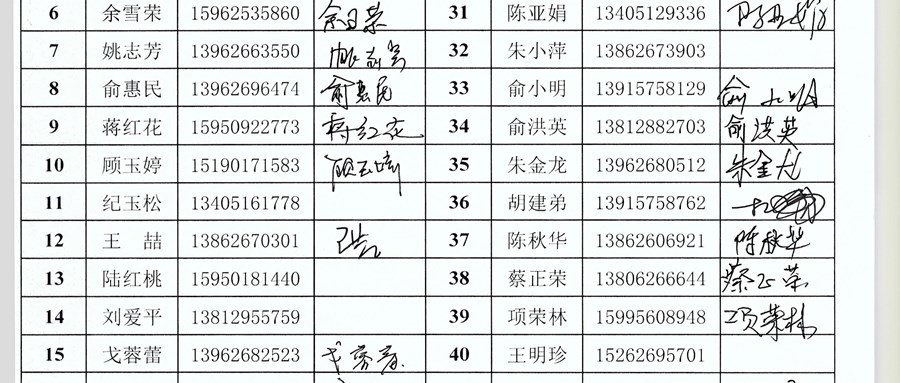 6 余雪荣 15962535860 余雪荣 31 陈亚娟 13405129336
7 姚志芳 13962663550 姚志芳 32 朱小萍 13862673903
8 俞惠民 13962696474 俞惠民 33 俞小明 13915758129 俞小明
9 蒋红花 15950922773 蒋红花 34 俞洪英 13812882703 俞洪英
10 顾玉婷 15190171583 顾玉婷 35 朱金龙 13962680512 朱金龙
11 纪玉松 13405161778 36 胡建弟 13915758762
12 王喆 13862670301 王喆 37 陈秋华 13862606921 陈秋华
13 陆红桃 15950181440 38 蔡正荣 13806266644 蔡正荣
14 刘爱平 13812955759 39 项荣林 15995608948 项荣林
15 戈蓉蕾 13962682523 戈蓉蕾 40 王明珍 15262695701